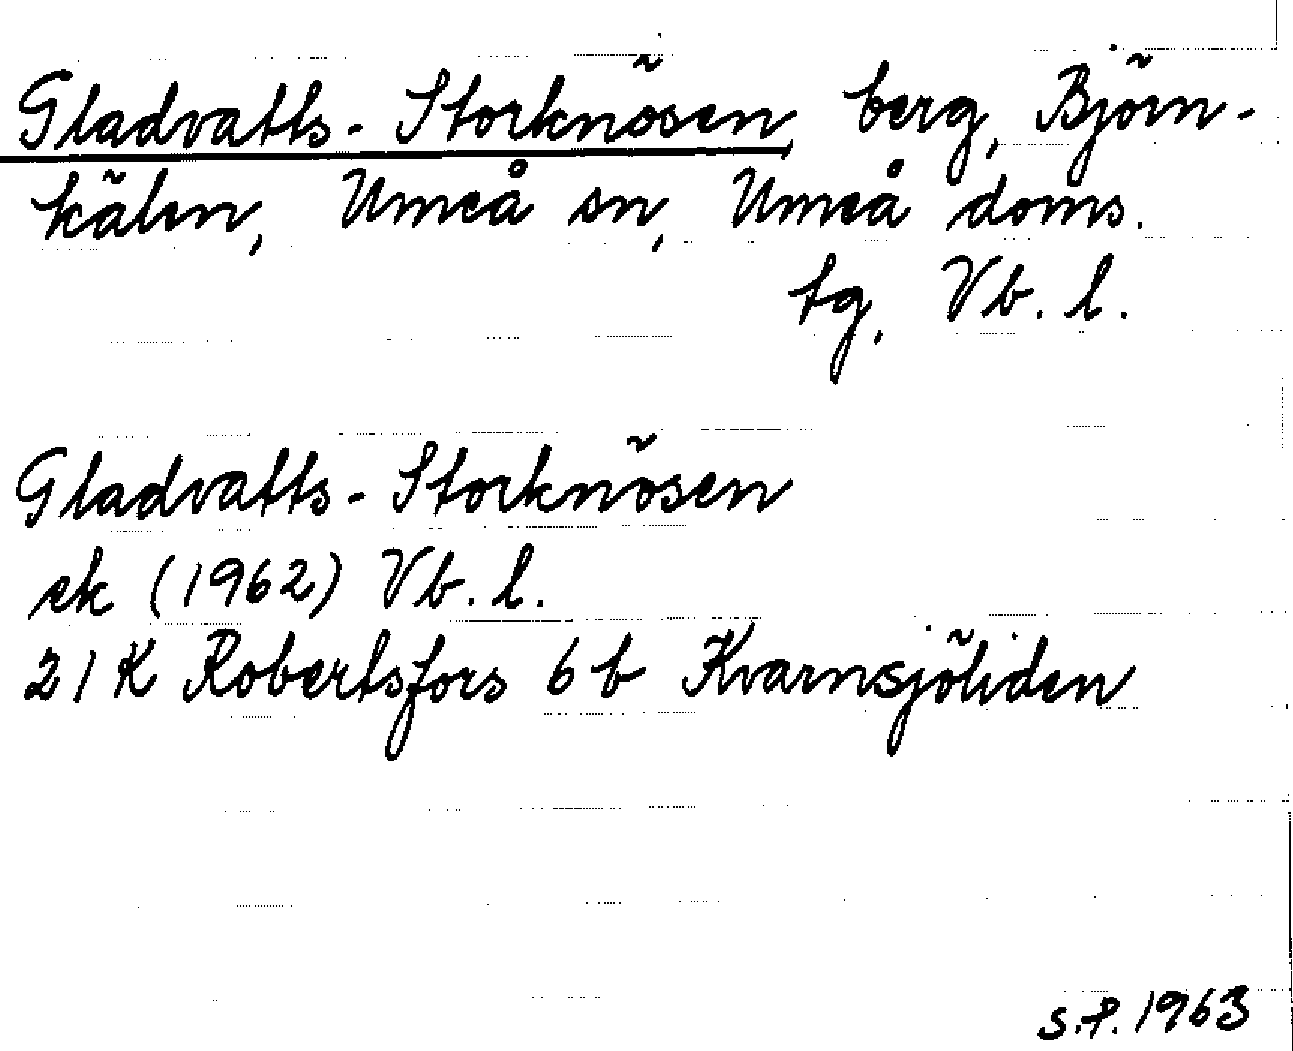 Gladvatts-Storknösen, berg, Björn-
kälen, Umeå sn, Umeå doms.
tg, Vb. l.
Gladvatts-Storknösen
ek (1962) Vb. l.
21K Robertsfors 6b Kvarnsjöliden
S.P. 1963